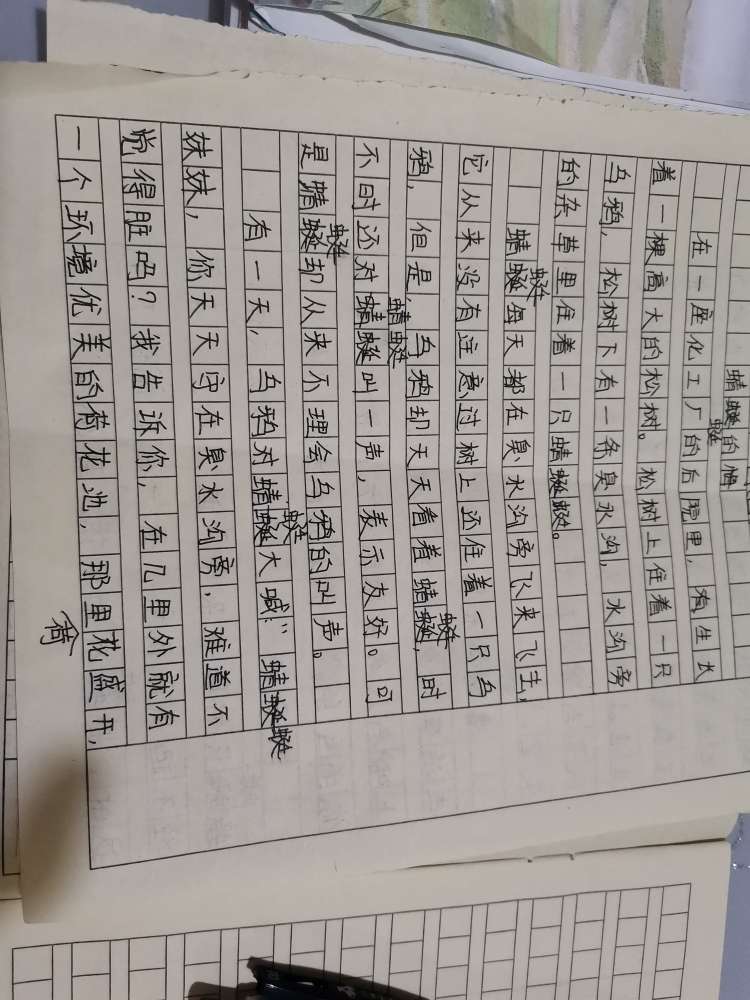 蜻蜓的悄
在一座化工厂的后院里，有生长
着一棵高大的松树。松树上住着一只
乌鸦，松树下有一条臭水沟，水沟旁
的杂草里住着一只蜻蜓。
蜻蜓每天都在臭水沟旁飞来飞去，
它从来没有注意过树上还住着一只乌
鸦，但是，乌鸦却天天看着蜻蜓，时
不时还对蜻蜓叫一声，表示友好。可
是蜻蜓却从来不理会乌鸦的叫声。
有一天，乌鸦对蜻蜓大喊：“蜻蜓
妹妹，你天天守在臭水沟旁，难道不
觉得脏吗？我告诉你，在几里外就有
一个环境优美的荷花池，那里花盛开，
荷